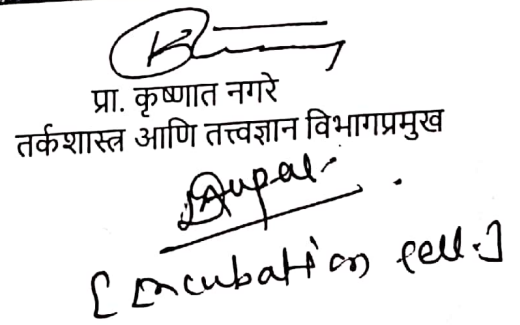 प्रा. कृष्णात नगरे
तर्कशास्त्र आणि तत्त्वज्ञान विभागप्रमुख
[Incubation cell.]